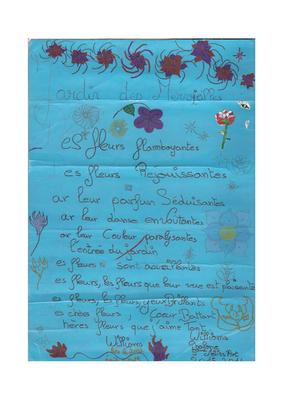 ardin des Merveilles
es fleurs flamboyantes
es fleurs Rejouissantes
ar leur parfum Séduisantes
ar leur danse envoutantes
ar leur Couleur paralysantes
l'entrée du jardin
es fleurs sont
es fleurs, les fleurs que leur vue est plaisante
es fleurs, les fleurs, yeux Brillants
es chères fleurs, coeur Battant
hères fleurs que j'aime Tant
Williams
Williams